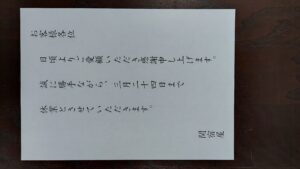 お客様各位
日頃よりご愛顧いただき感謝申し上げます。
誠に勝手ながら、三月二十四日まで
休業とさせていただきます。
開宿屋